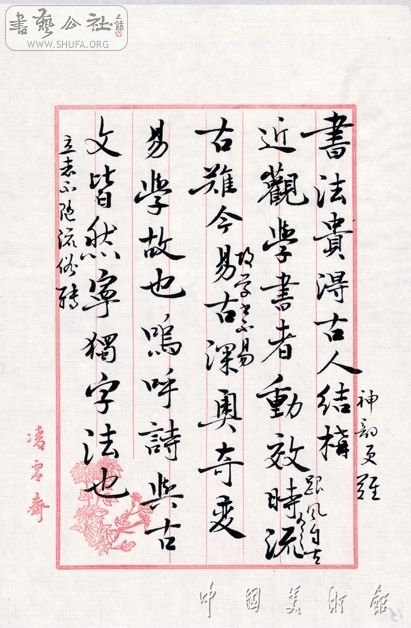 書藝公社
WWW.SHUFA.ORG
書法貴得古人結構
神韵更難
近觀學書者動效時流
跟风自古
古難今易古深奧奇變
故学古不易
易學故也嗚呼詩與古
文皆然寧獨字法也
立志不随流俗轉
齋
中國美術館